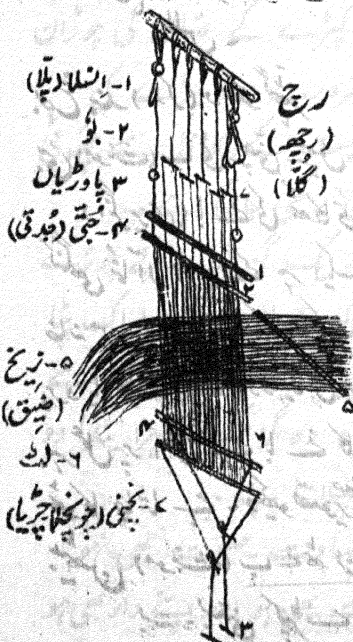 رچ
(رچھ)
(گُلّا)
۱- اِنسلا (پلّا)
۲- بَو
۳ پاوڑیاں
۴- چُتّی (جُدتی)
۵- نریخ
(ضیق)
۶- لٹ
۷- نچنی (جونچلا چڑیا)
۱
۲
۵
۴
۶
۳